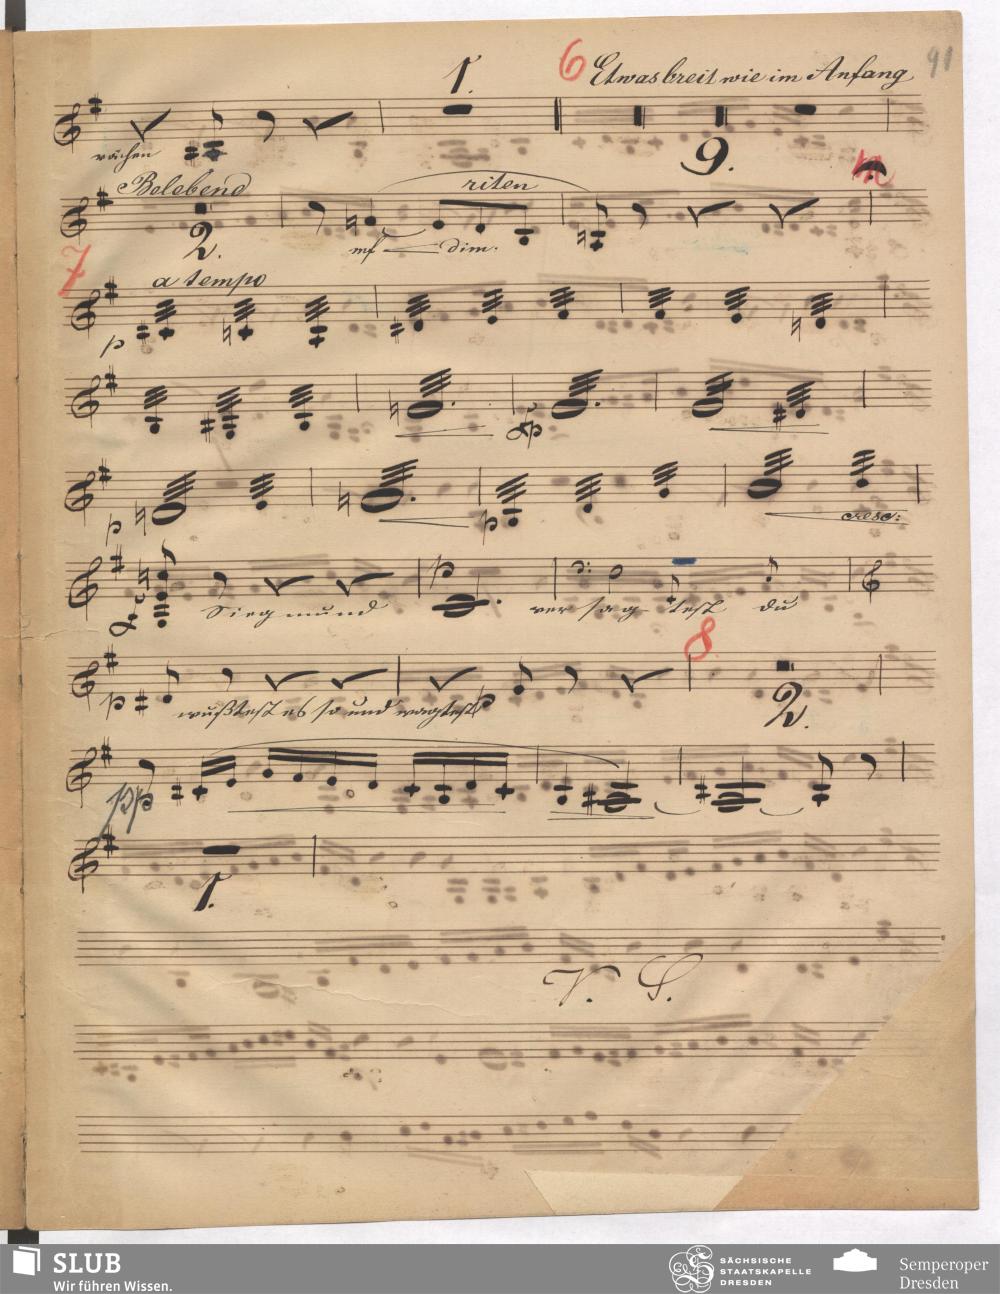 91
1.
6 Etwas breit wie im Anfang
rächen
9.
Belebend
riten
2.
mf dim.
7
a tempo
p
fp
p
p
cresc:
p
Siegmund
versagtest du
8
p
wußtest es so und wagtest
p
2.
pp
1.
V. S.
SLUB
Wir führen Wissen.
SÄCHSISCHE
STAATSKAPELLE
DRESDEN
Semperoper
Dresden